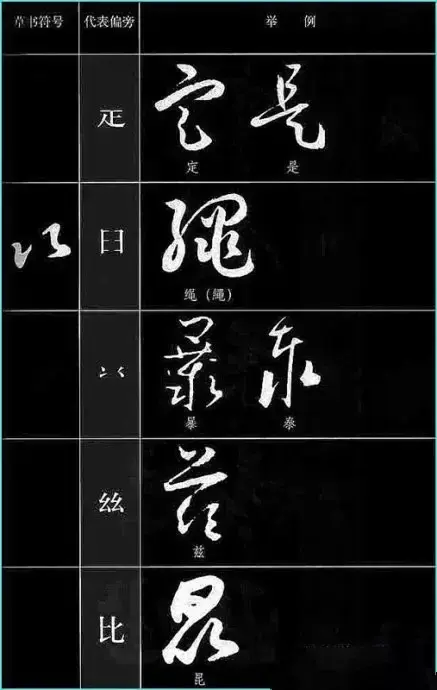 草书符号 代表偏旁 举例
𤴓
定 是
臼
绳（繩）
氺
暴 泰
玆
兹
比
昆